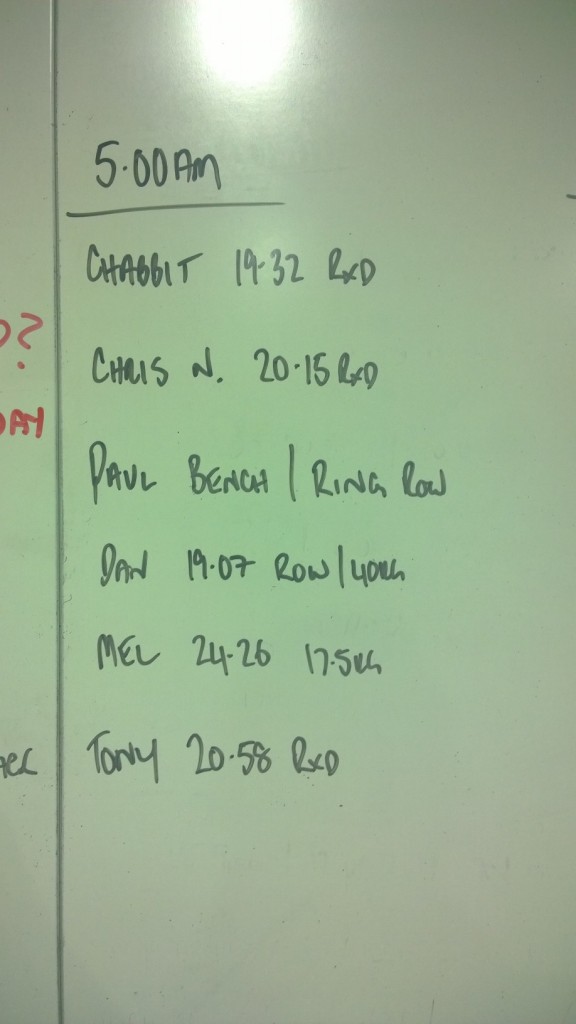 5.00AM
CHABBIT 19.32 RXD
CHRIS N. 20.15 RXD
PAUL BENCH | RING ROW
DAN 19.07 ROW | 40KG
MEL 24.26 17.5KG
TONY 20.58 RXD
?
DAY